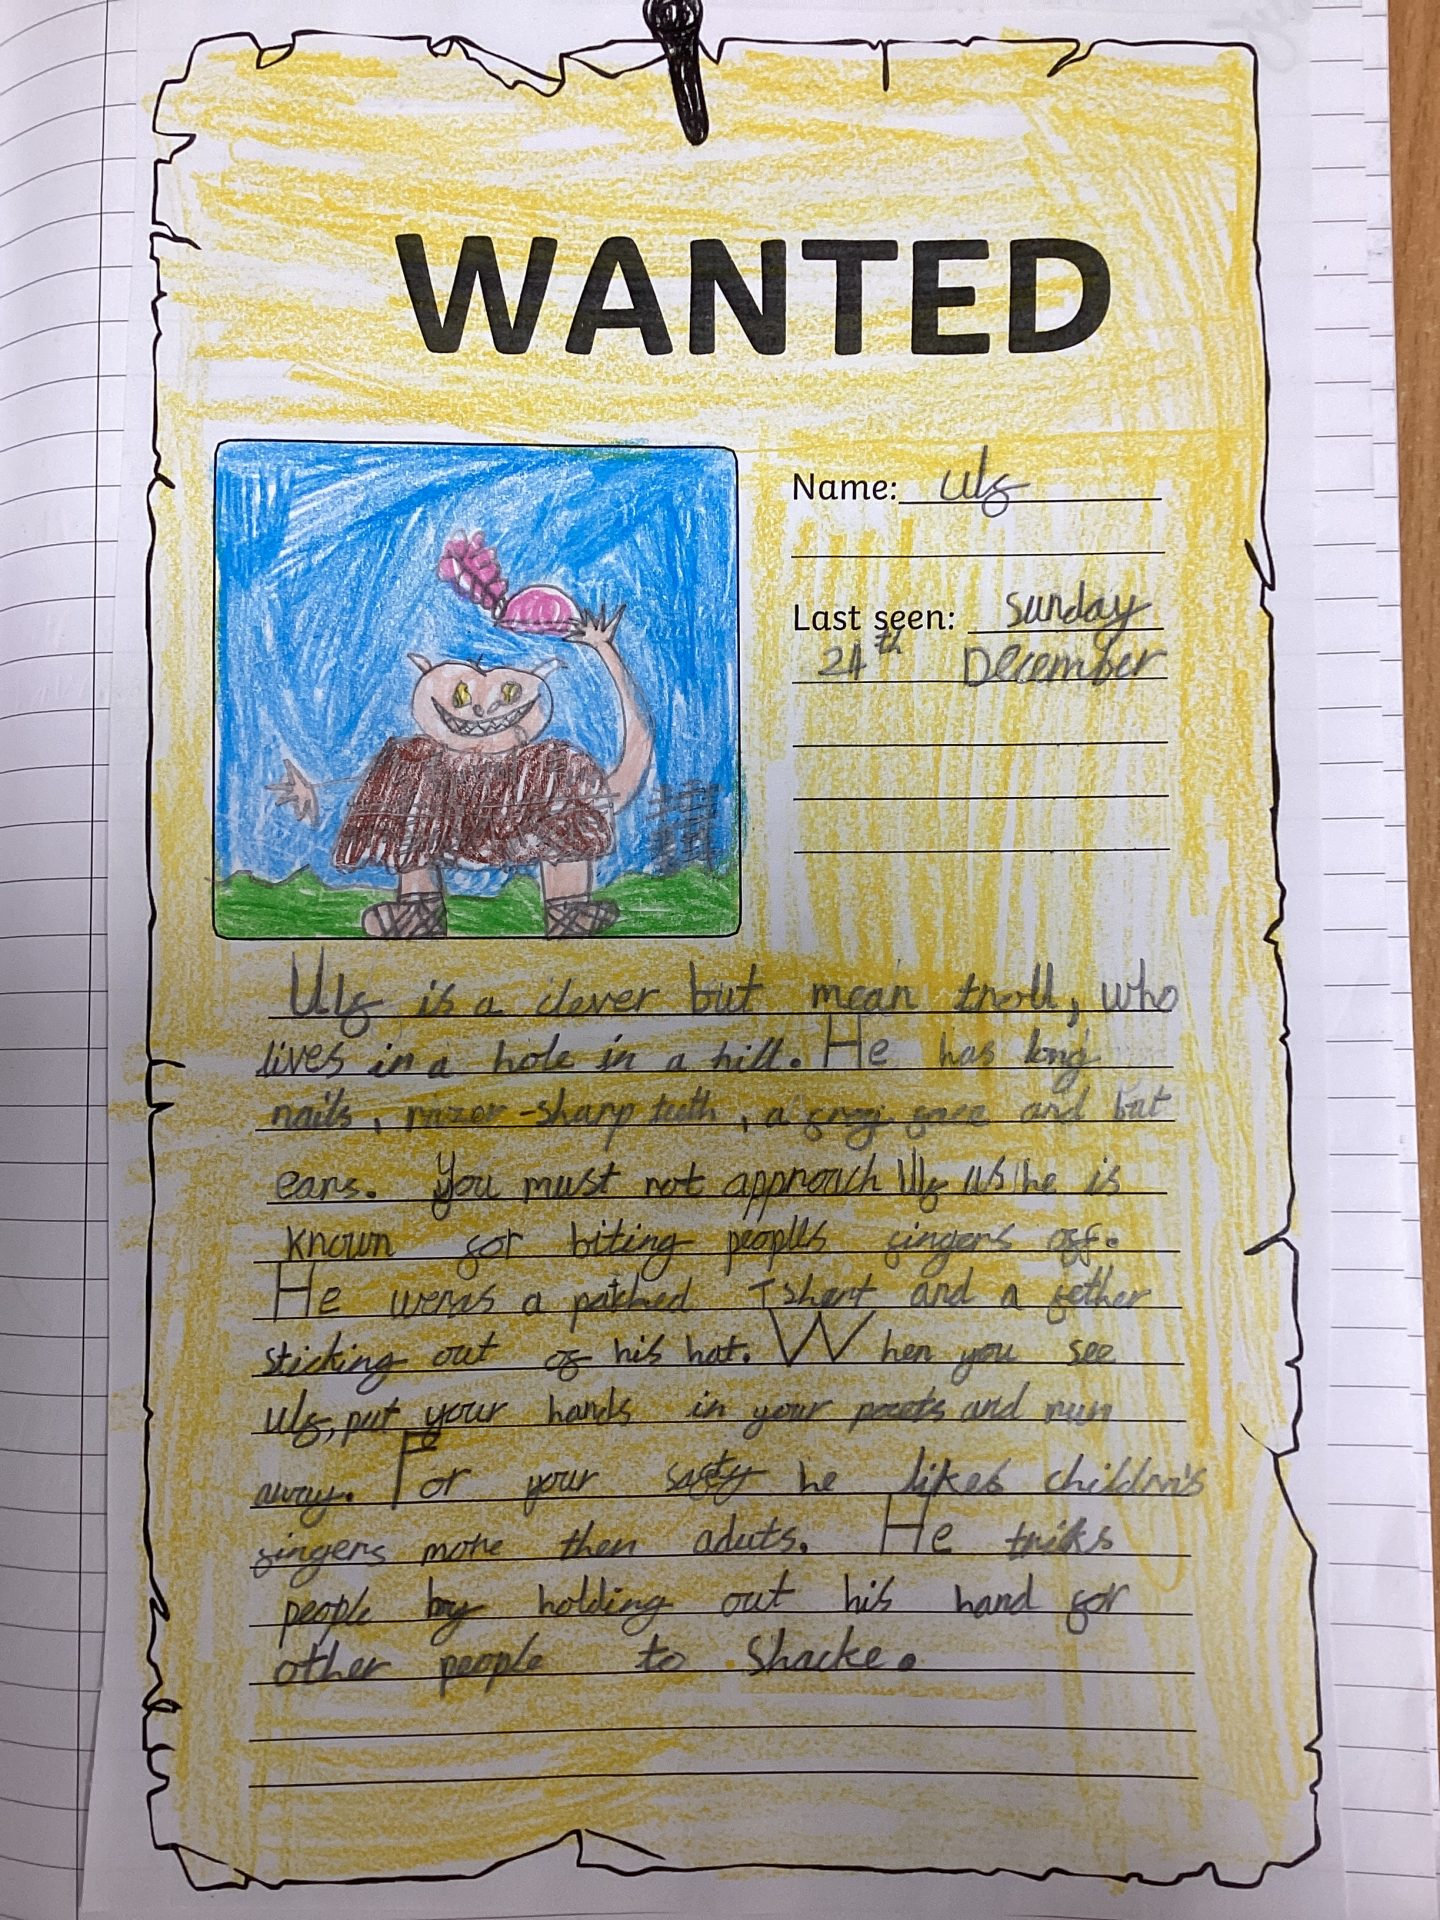 WANTED
Name: Ulf
Last seen: Sunday
24th December
Ulf is a clever but mean troll, who
lives in a hole in a hill. He has long
nails, razor-sharp teeth, a frog face and bat
ears. You must not approach Ulf as he is
known for biting people's fingers off.
He wears a patched T shert and a fether
sticking out of his hat. When you see
Ulf, put your hands in your pocets and run
away. For your safty he likes children's
fingers more then aduts. He triks
people by holding out his hand for
other people to shacke.